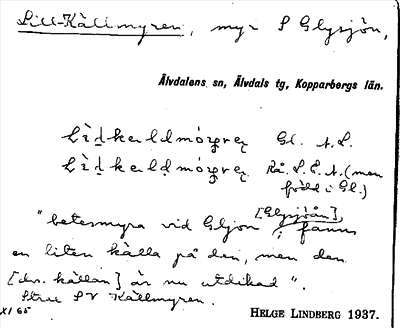 Lill-Källmyren, myr S Glysjön,
Älvdalens sn, Älvdals tg, Kopparbergs län.
Gl. A. L.
Rå. L. E. A. (men
född i Gl.)
[Glysjöån],
"betesmyra vid Glyon, fanns
en liten källa på den, men den
[dvs. källan] är nu utdikad".
Strax SV Källmyren.
XI 65
HELGE LINDBERG 1937.